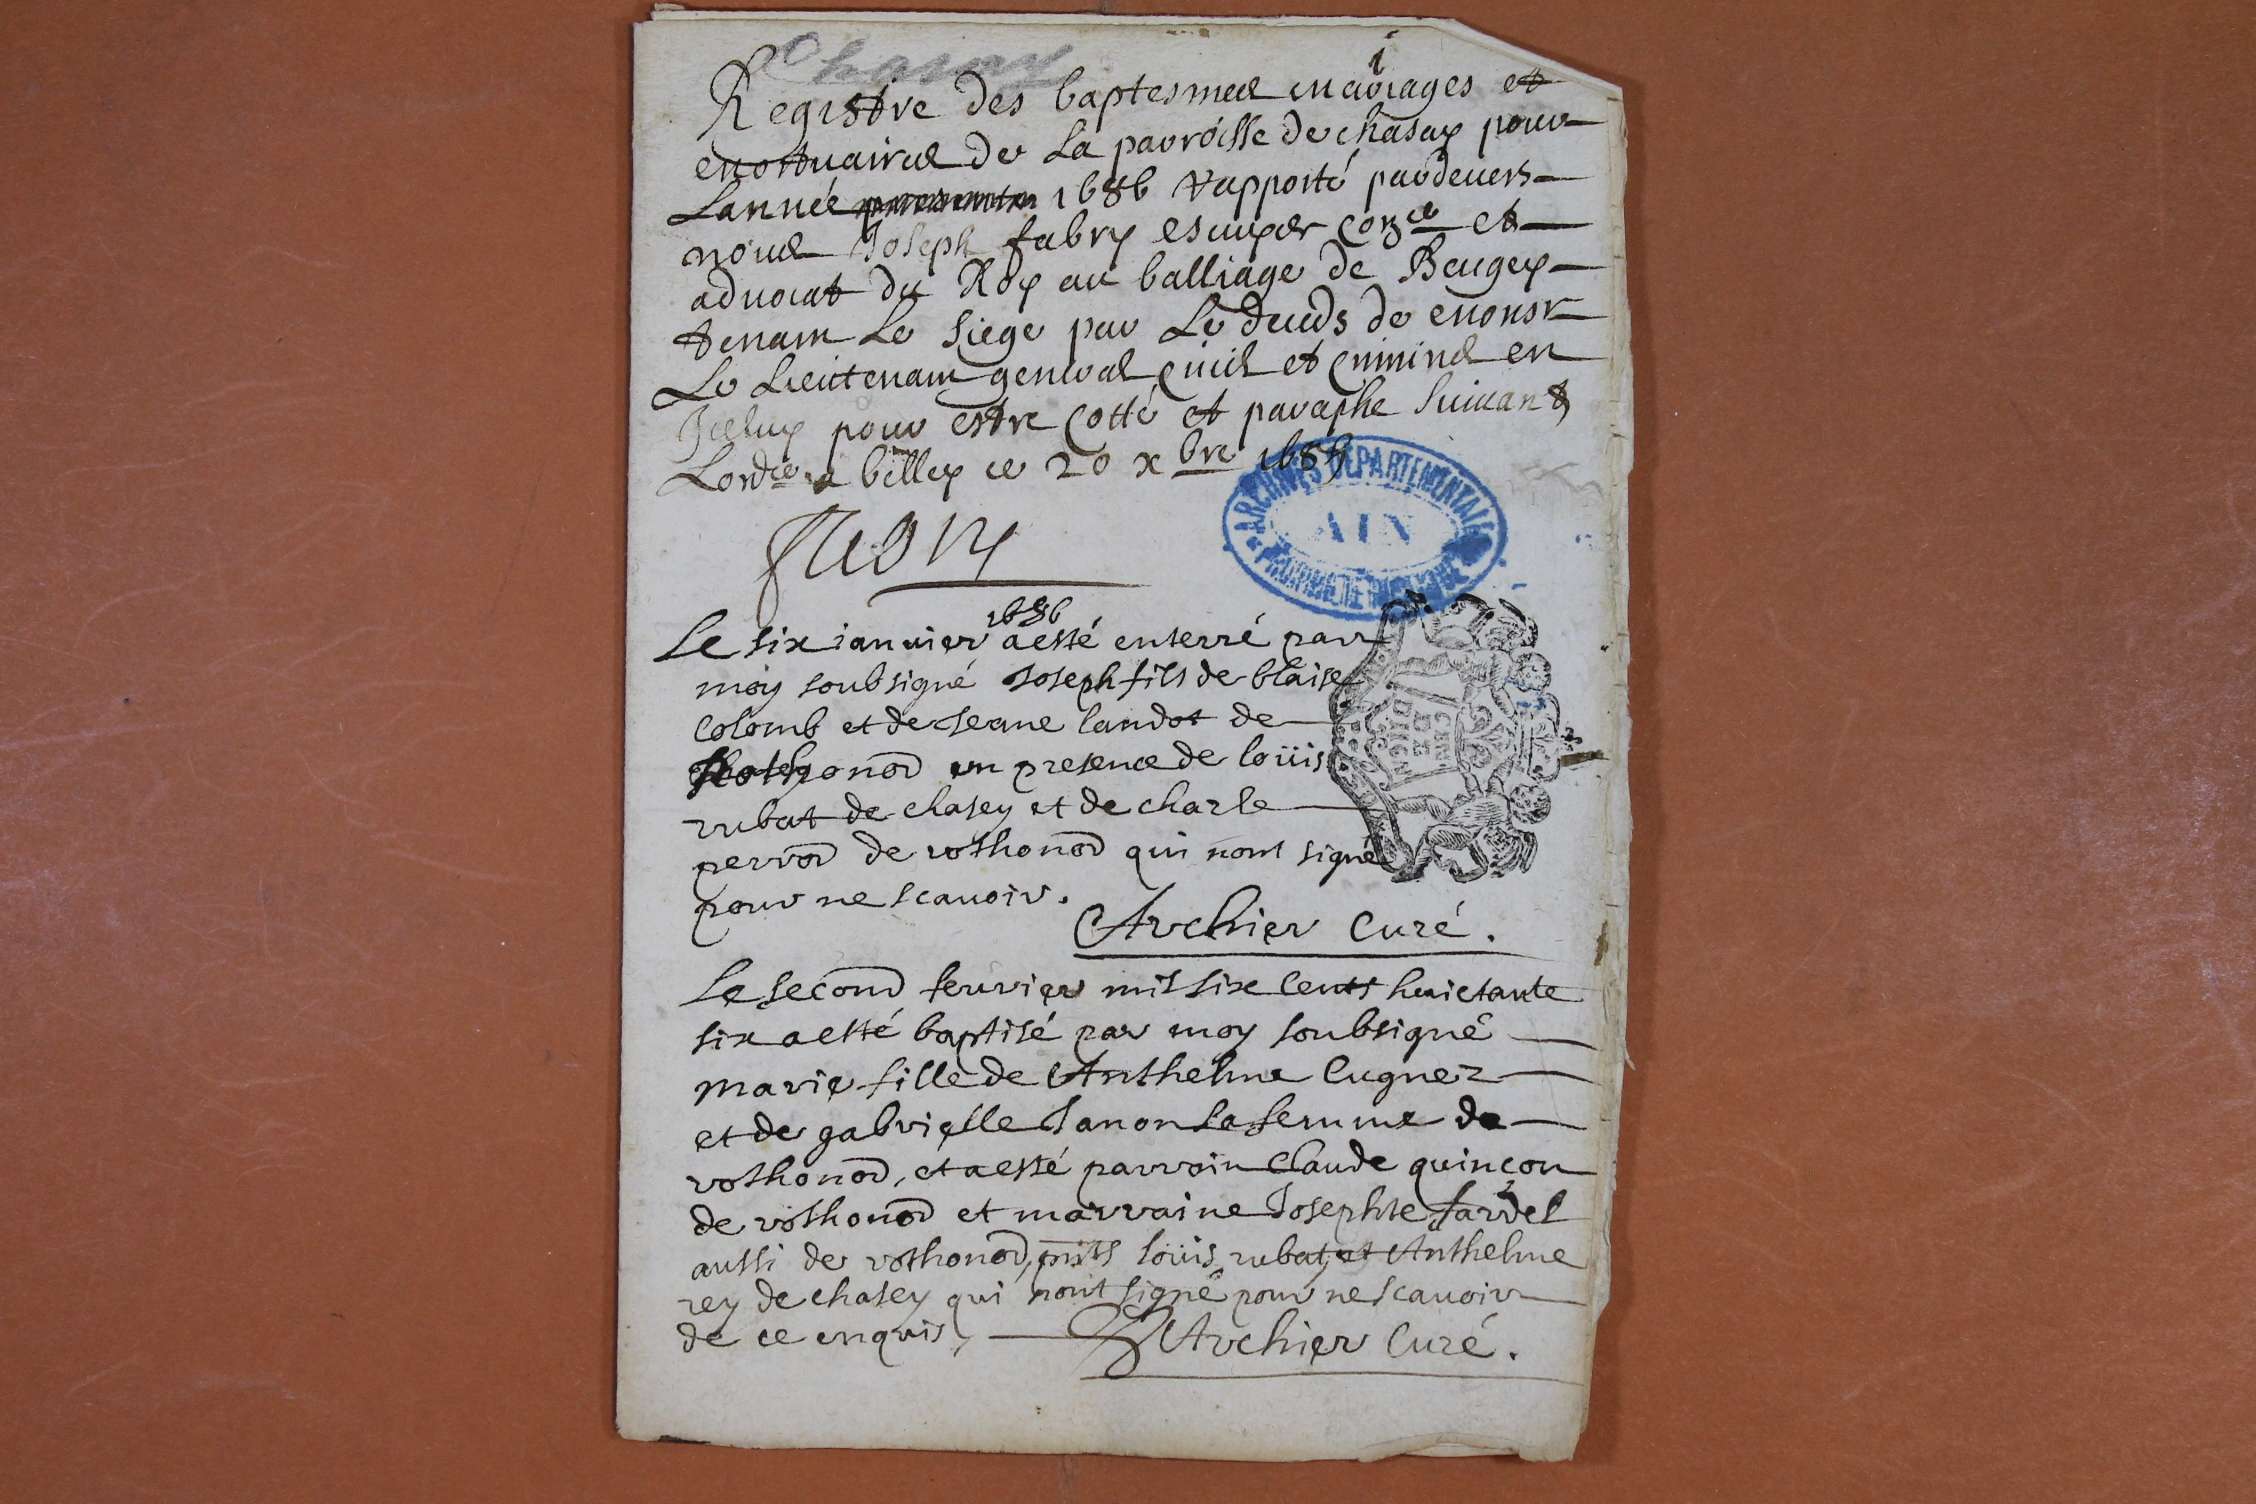 Chasey
1
Registre des baptesmes mariages et
mortuaires de La parroisse de chasay pour
Lannée presente 1686 rapporté pardevers
nous Joseph fabry escuyer con.er et
advocat du Roy au balliage de Beugey
tenant Le siege par Le deceds de monsr
Le Lieutenant general civil et criminel en
Jceluy pour estre cotté et paraphe suivant
Lord.ce a belley ce 20 xbre 1685
fabry
ARCHIVES DÉPARTEMENTALES
AIN
Le six ianvier 1686 a esté enterré par
moy soubsigné Joseph fils de blaise
Colomb et de Jeane landot de
Rothonod en presence de loüis
rubat de chasey et de charle
perrod de rothonod qui nont signé
pour ne scavoir.
Archier Curé.
Le second feuvrier mil six Cents huictante
six a esté baptisé par moy soubsigné
marie fille de Anthelme Cugnez
et de gabrielle Janon sa femme de
rothonod, et a esté parrain Claude quincon
de rothonod et marraine Josephte fardel
aussi de rothonod, pnts loüis rubat, et Anthelme
rey de chasey qui nont signé pour ne scavoir
de ce enquis, Archier Curé.